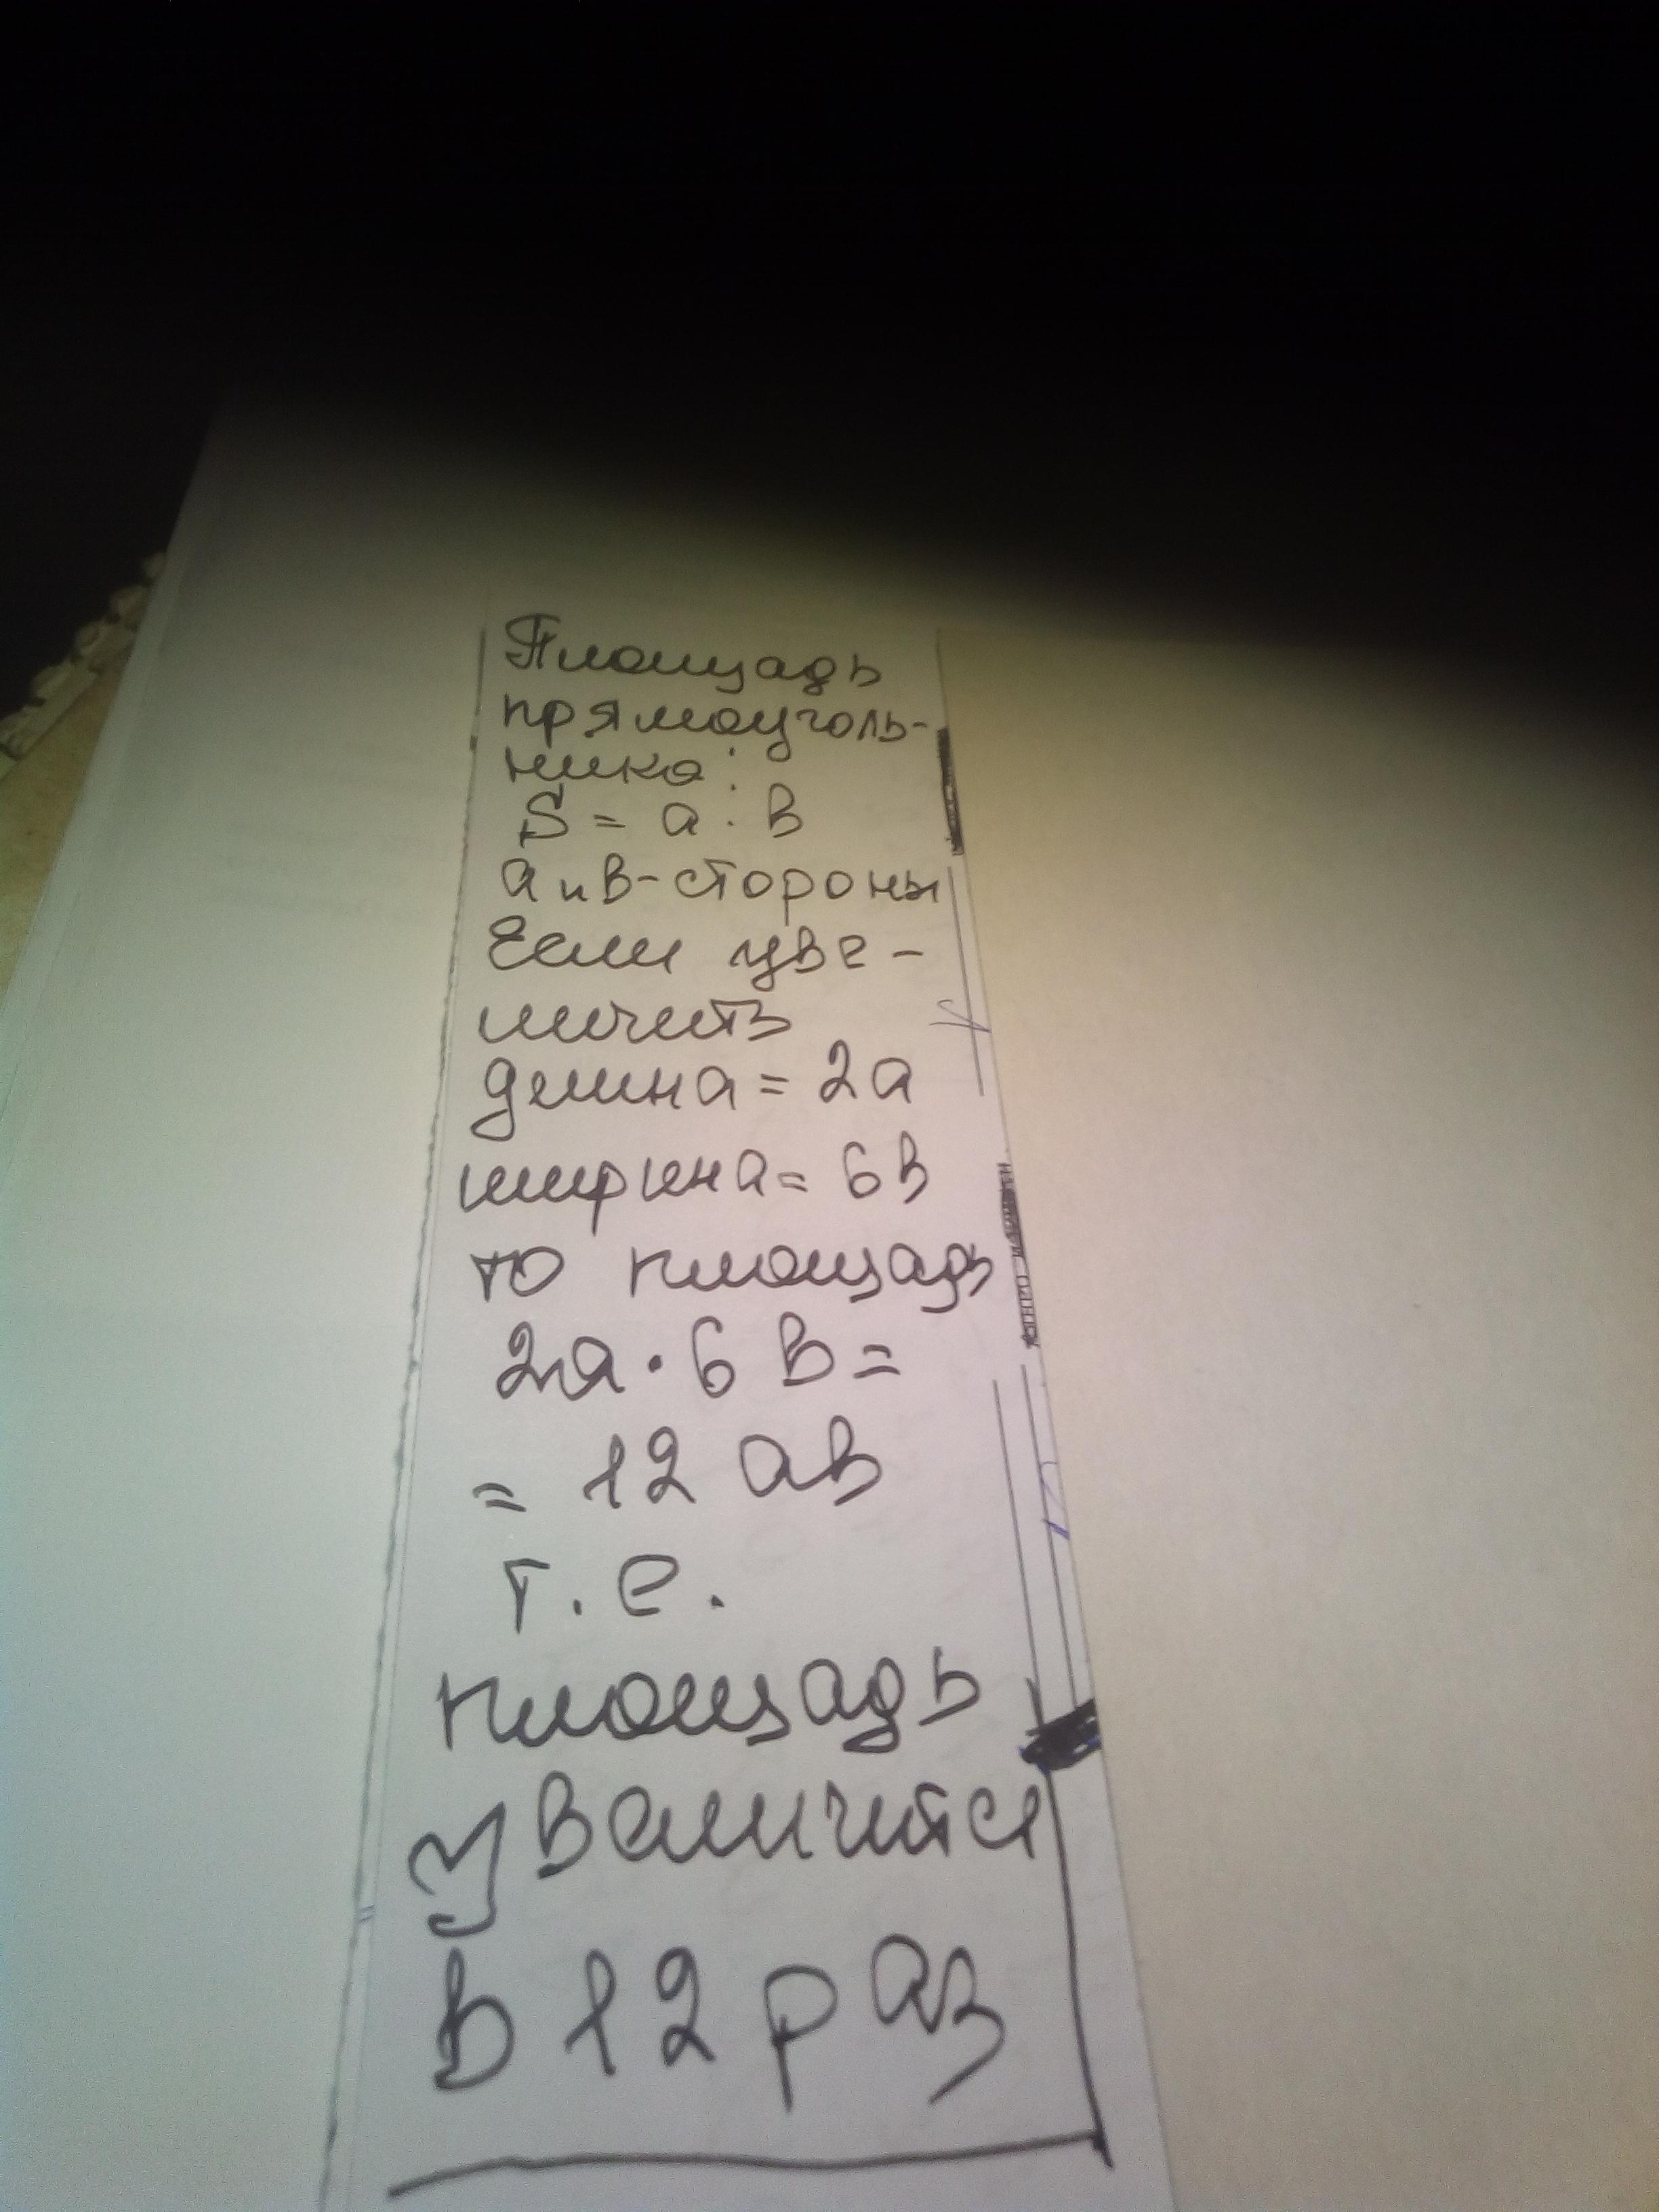 Площадь
прямоуголь-
ника:
S = а · в
а и в - стороны
Если уве-
личить
длина = 2а
ширина = 6в
то площадь
2а · 6 в =
= 12 ав
т. е.
площадь
увеличится
в 12 раз